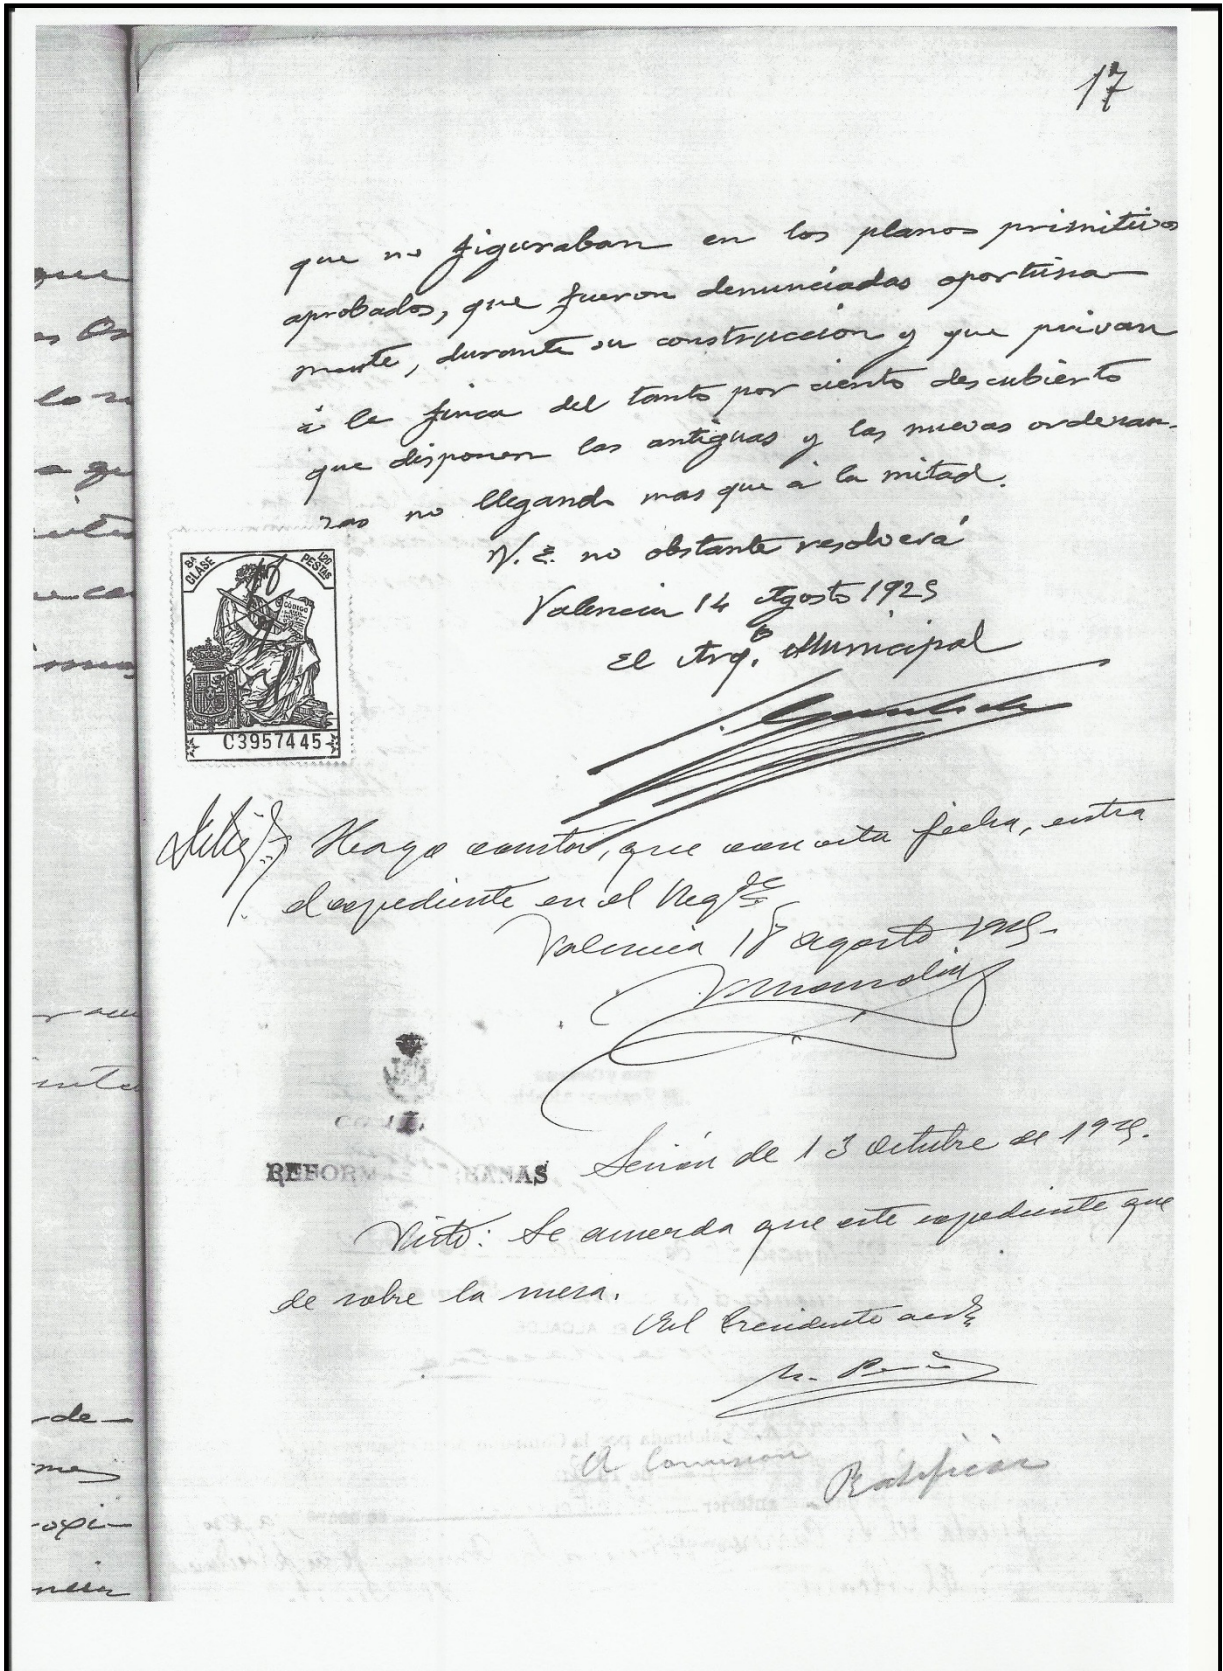 17
que no figuraban en los planos primitivos
aprobados, que fueron denunciadas oportuna-
mente, durante su construcción y que privan
á la finca del tanto por ciento descubierto
que disponen las antiguas y las nuevas ordenan-
zas no llegando mas que á la mitad.
V. E. no obstante resolverá
Valencia 14 Agosto 1925
El Arqto. Municipal
8ª CLASE
120 PESTAS
CÓDIGO
C3957445
Hago constar, que con esta fecha, entra
el expediente en el Neg
Valencia 18 agosto 1925.
REFORM BANAS
Sesión de 13 Octubre de 1925.
Visto: Se acuerda que este expediente que
de sobre la mesa.
El Presidente
A Comision
Ratificar
que
lo
de-
mes